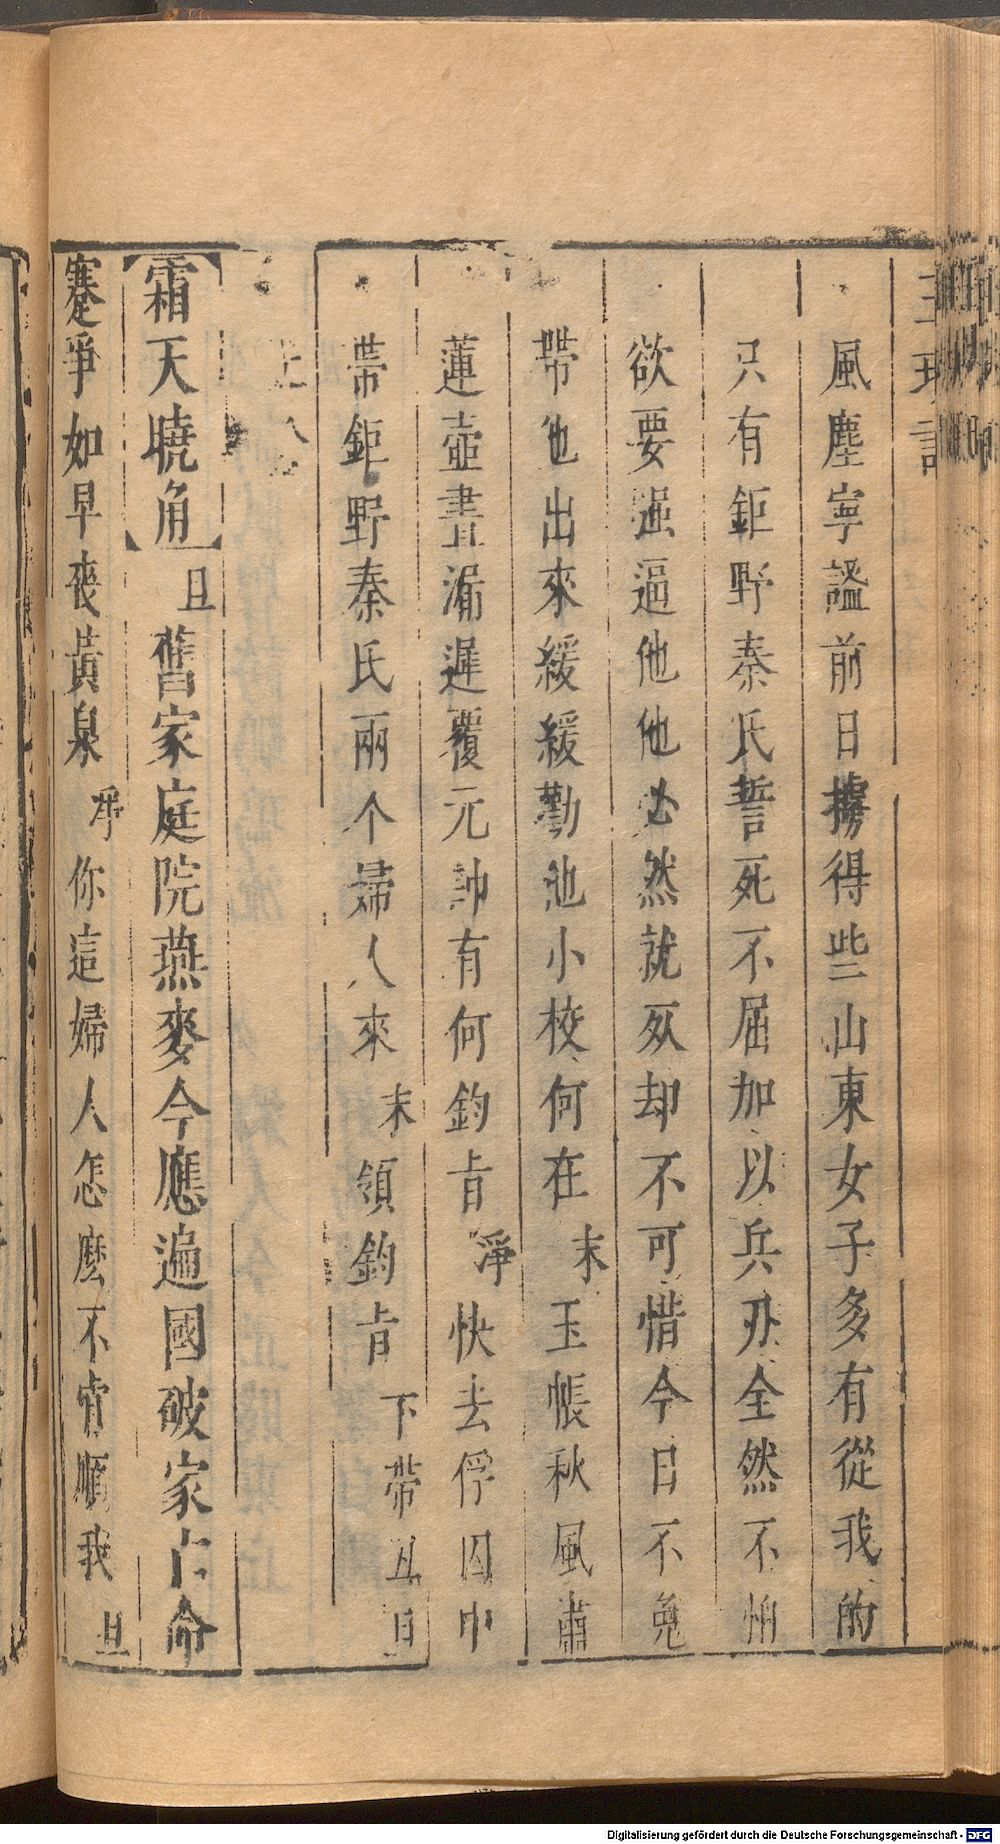 風塵寧謐前日擄得些山東女子多有從我的
只有鉅野秦氏誓死不屈加以兵刃全然不怕
欲要强逼他他必然就死却不可惜今日不免
帶他出來緩緩勸他小校何在末玉帳秋風肅
蓮壺晝漏遲覆元帥有何鈞旨淨快去俘囚中
帶鉅野秦氏兩个婦人來末領鈞旨下帶丑旦
上介
【霜天曉角】旦舊家庭院燕麥今應遍國破家亡命
蹇爭如早喪黃泉淨你這婦人怎麽不肯順我旦
Digitalisierung gefördert durch die Deutsche Forschungsgemeinschaft - DFG